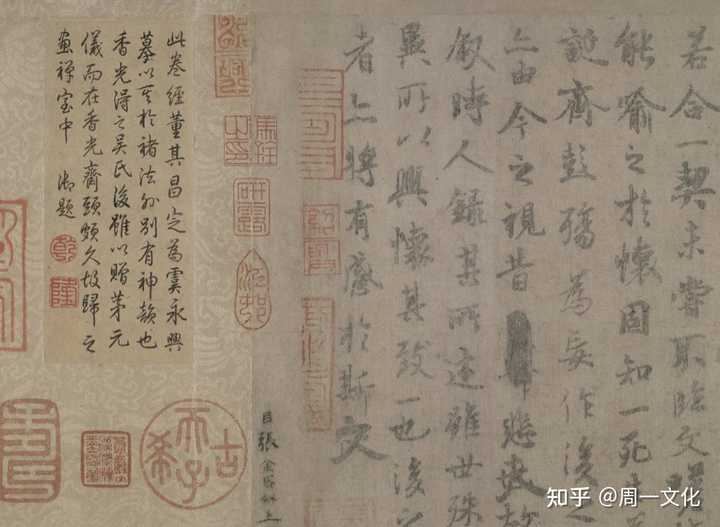 若合一契未嘗不臨文嗟
能喻之於懷固知一死
誕齊彭殤為妄作後之
亦由今之視昔悲夫故
敘時人錄其所述雖世殊
異所以興懷其致一也後之
者亦將有感於斯文
臣張金界奴上
此卷經董其昌定為虞永興
摹以其於褚法外別有神韻也
香光得之吳氏後雖以贈茅元
儀而在香光齋頭頗久故歸之
畫禪室中 御題
乾隆
古希天子
知乎 @周一文化